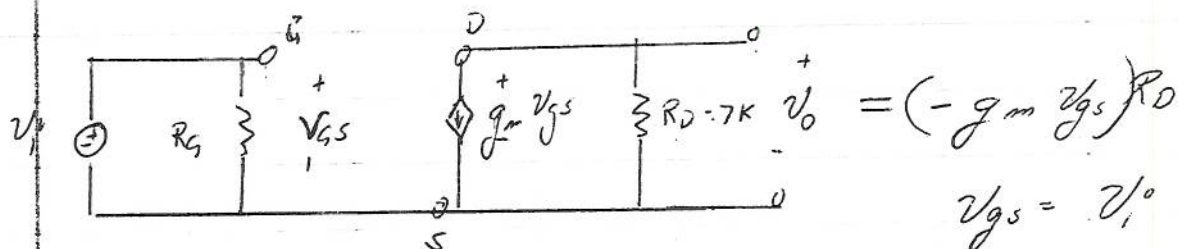 G D
v_i + R_G + V_GS - + g_m v_gs R_D = 7K + v_o - = (- g_m v_gs) R_D
S
v_gs = v_i